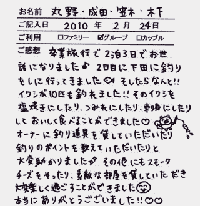 お名前 丸野・成田・空ネ・木下
ご記入日 2010年 2月 24日
ご利用 □ファミリー ☑グループ □カップル
ご感想 卒業旅行で2泊3日でお世
話になりました♪ 2日目に下田に釣り
をしに行ってきました♡ そしたらなんと!!
イワシが10匹も釣れました!!そのイワシを
塩焼きにしたり、つみれにしたり、刺身にしたり
しておいしく食べることができました♡
オーナーに釣り道具を貸していただいたり
釣りのポイントを教えていただいたりと
大変助かりました♪ その他にもスモーク
チーズを作ったり、素敵な部屋を貸していただき
快適に過ごすことができました☺
本当にありがとうございました!!♡♡